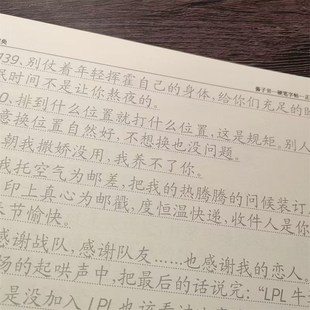 骗子页—硬笔字帖—正
939.别仗着年轻挥霍自己的身体,给你们充足的休
时间不是让你熬夜的。
0.排到什么位置就打什么位置,这是规矩,别人
意换位置自然好,不想换也没问题。
朝我撒娇没用,我养不了你。
我托空气为邮差,把我的热腾腾的问候装订
印上真心为邮戳,度恒温快递,收件人是你
节愉快。
感谢战队,感谢队友……也感谢我的恋人。
场的起哄声中,把最后的话说完:“LPL牛
是没加入LPL也该